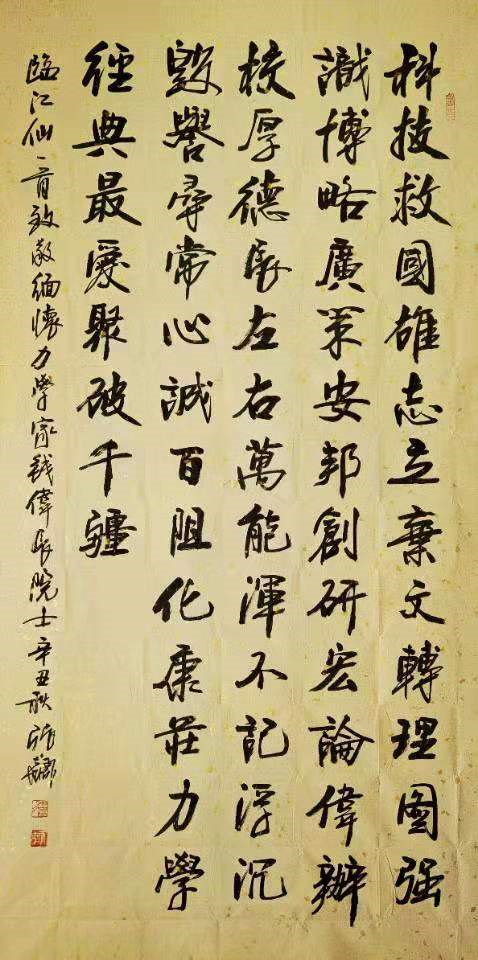 科技救國雄志立棄文轉理圖强
識博略廣策安邦創研宏論偉辦
校厚德長左右萬能渾不記浮沉
毁譽尋常心誠百阻化康莊力學
經典最愛聚破千疆
臨江仙一首致敬緬懷力學家錢偉長院士辛丑秋